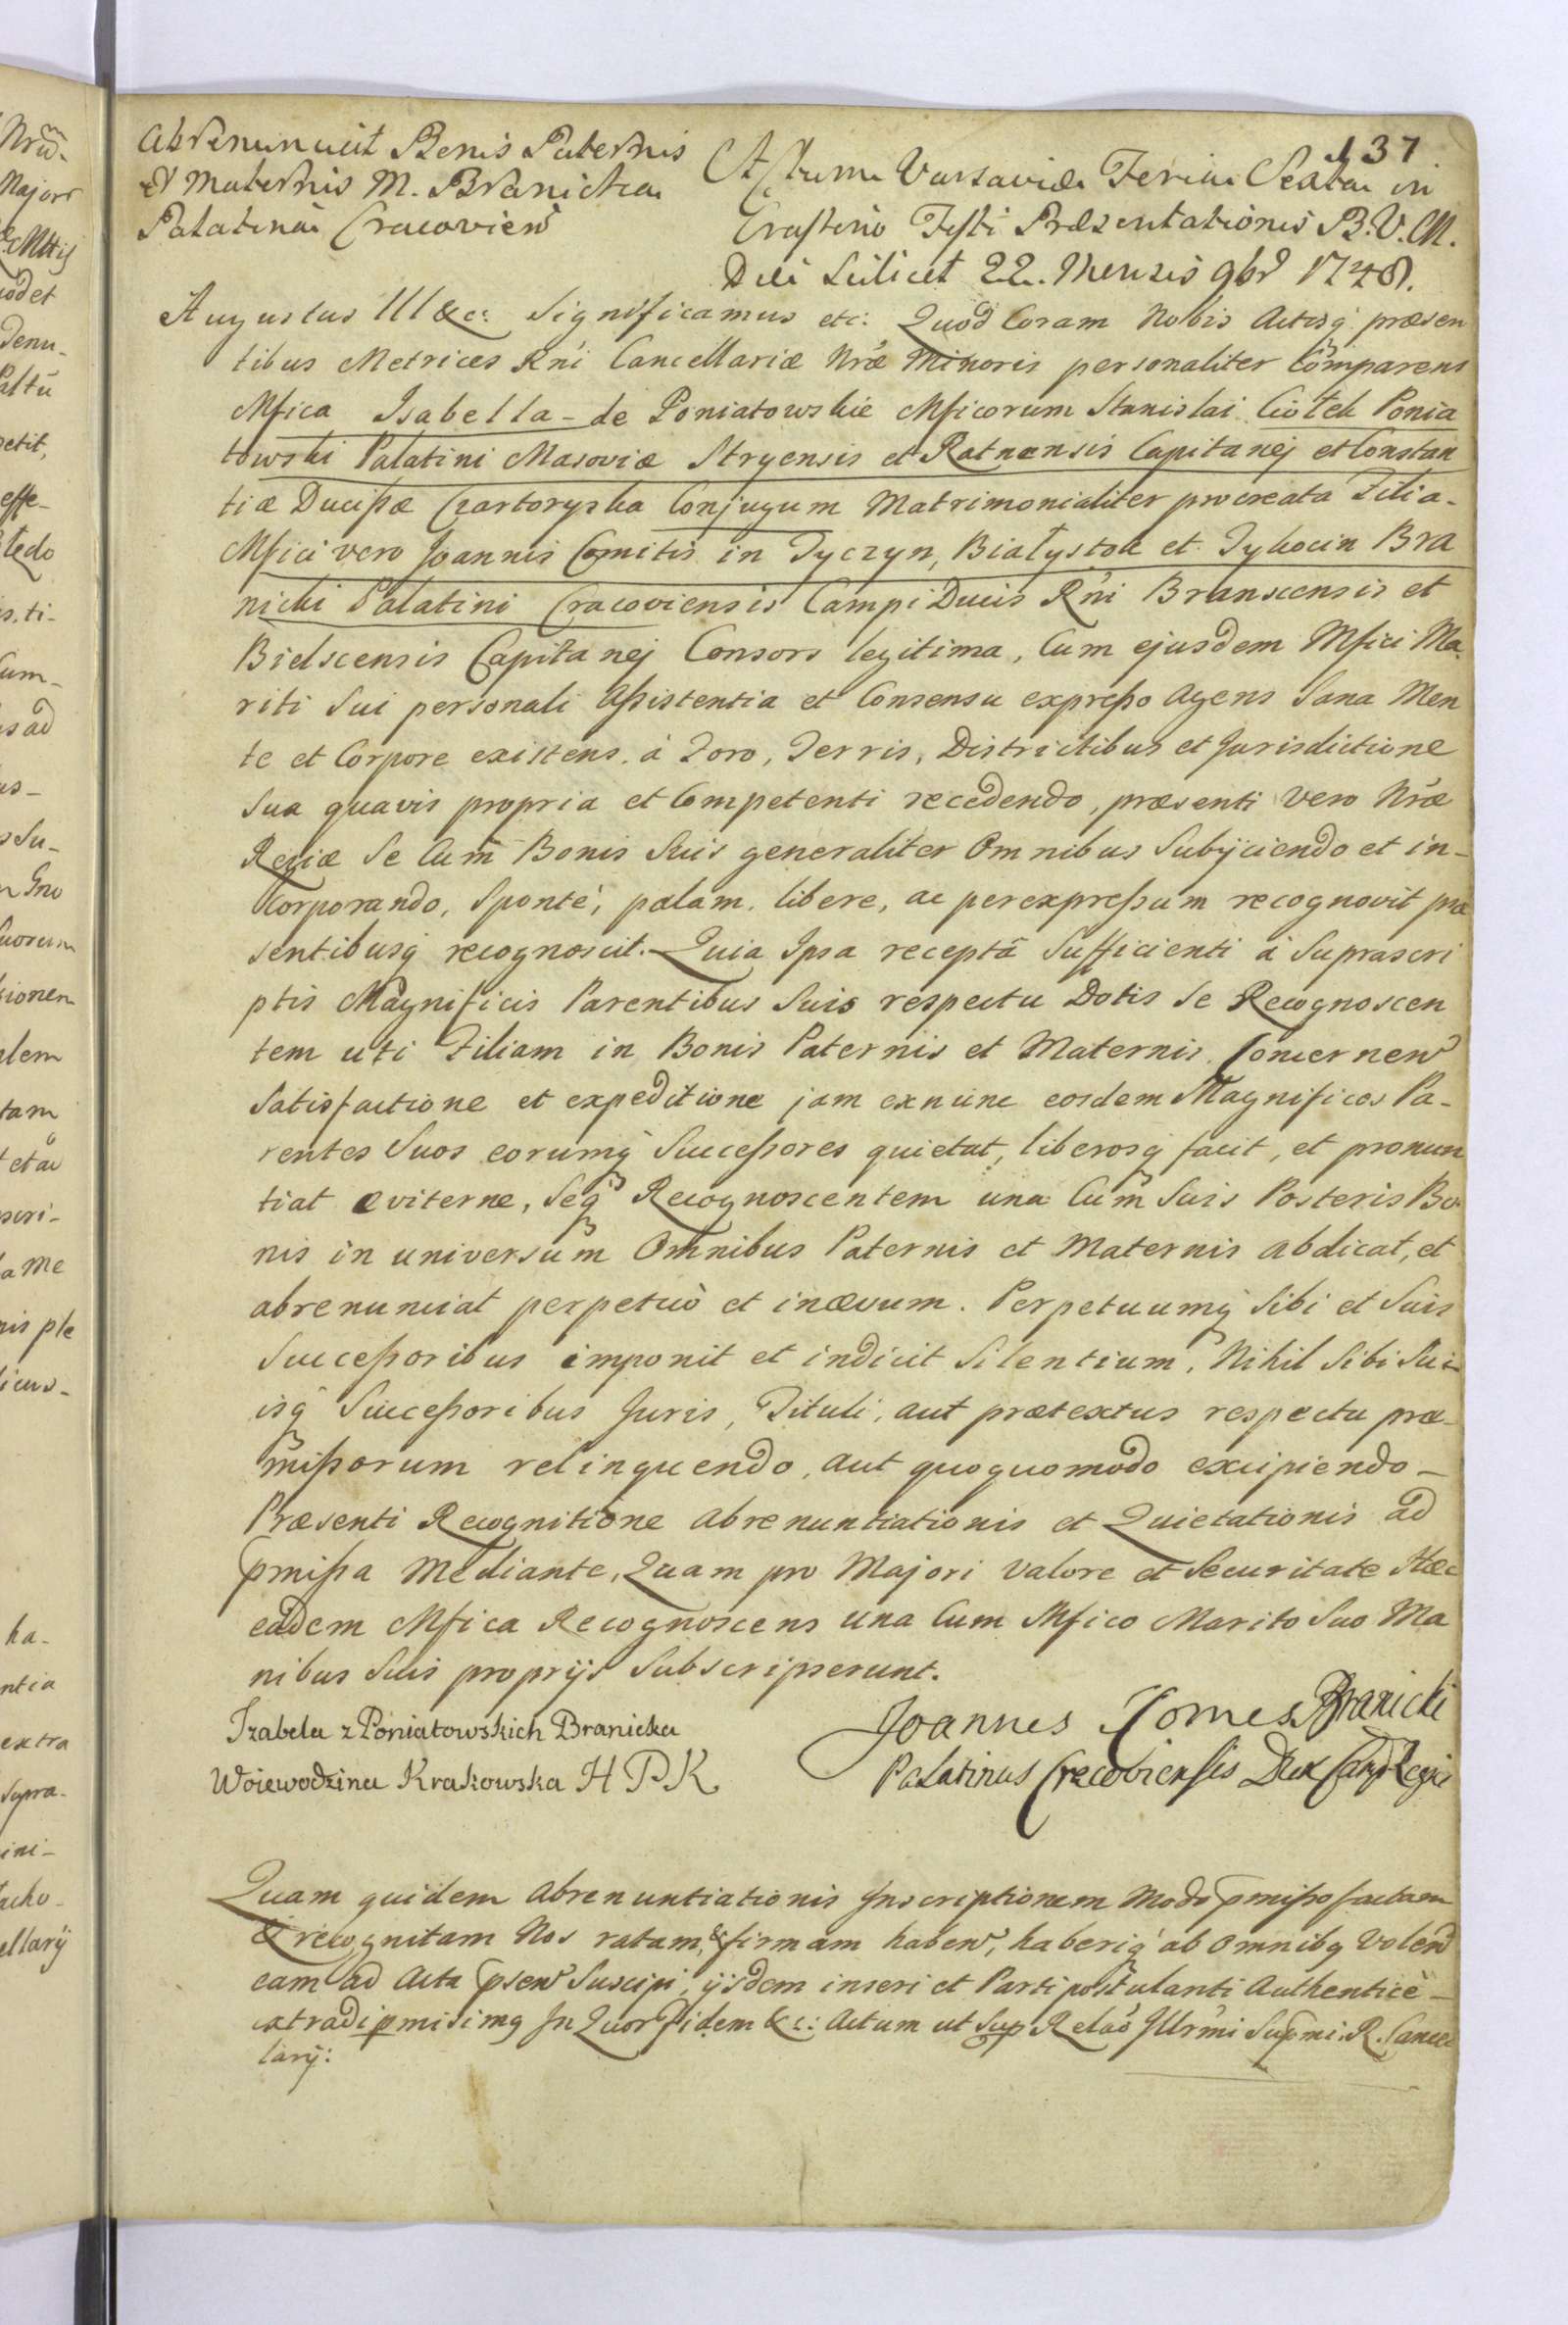 137.
Abrenunciat Bonis Paternis
et Maternis M. Branicka
Palatina Cracovien
Actum Varsaviæ Feria Sexta in
Crastino Festi Præsentationis B.V.M.
Die Scilicet 22. Mensis 9br 1748.
Augustus III &c: Significamus etc: Quod Coram Nobis Actisq præsen
tibus Metrices Rni Cancellariæ Nræ Minoris personaliter Comparens
Mfica Isabella de Poniatowskie Mficorum Stanislai Ciołek Ponia
towski Palatini Masoviæ Stryensis et Ratnensis Capitanej et Constan
tiæ Ducißæ Czartoryska Conjugum Matrimonialiter procreata Filia-
Mfici vero Joannis Comitis in Tyczyn, Białystok et Tykocin Bra
nicki Palatini Cracoviensis Campi Ducis Rni Branscensis et
Bielscensis Capitanej Consors legitima, Cum ejusdem Mfici Ma
riti Sui personali Aßistentia et Consensu expreßo Agens Sana Men
te et Corpore existens. à Foro, Terris, Districtibus et Jurisdictione
Sua quavis propria et Competenti recedendo, præsenti vero Nræ
Regiæ Se Cum Bonis Suis generaliter Omnibus Subijciendo et in-
corporando, Sponte, palam, libere, ac perexpreßum recognovit præ
sentibusq recognoscit. Quia Ipsa receptâ Sufficienti à Suprascri
ptis Magnificis Parentibus Suis respectu Dotis Se Recognoscen
tem uti Filiam in Bonis Paternis et Maternis Concernen
Satisfactione et expeditione jam exnunc eosdem Magnificos Pa-
rentes Suos eorumq Succeßores quietat, liberosq facit, et pronun
tiat eviterne, Seq Recognoscentem una Cum Suis Posteris Bo-
nis in universum Omnibus Paternis et Maternis abdicat, et
abrenunciat perpetuò et inævum. Perpetuumq Sibi et Suis
Succeßoribus imponit et indicit Silentium, Nihil Sibi Su-
isq Succeßoribus Juris, Tituli, aut prætextus respectu præ-
mißorum relinquendo, aut quoquomodo excipiendo-
Præsenti Recognitione Abrenuntiationis et Quietationis ad
pmißa Mediante, Quam pro Majori Valore et Securitate Hæc
eadem Mfica Recognoscens una Cum Mfico Marito Suo Ma
nibus Suis proprijs Subscripserunt.
Izabela z Poniatowskich Branicka
Woiewodzina Krakowska H P. K
Joannes Comes Branicki
Palatinus Cracoviensis Dux Camp Regni
Quam quidem Abrenuntiationis Inscriptionem Modo pmißo factam
& recognitam Nos ratam, & firmam haben, haberiq ab Omnibq Volen
eam ad Acta psen Suscipi, ijsdem inseri et Parti postulanti Authenticè-
extradi pmisimq In Quor Fidem &c: Actum ut Sup Relaô Illrmi Supmi R. Cancel
larij: